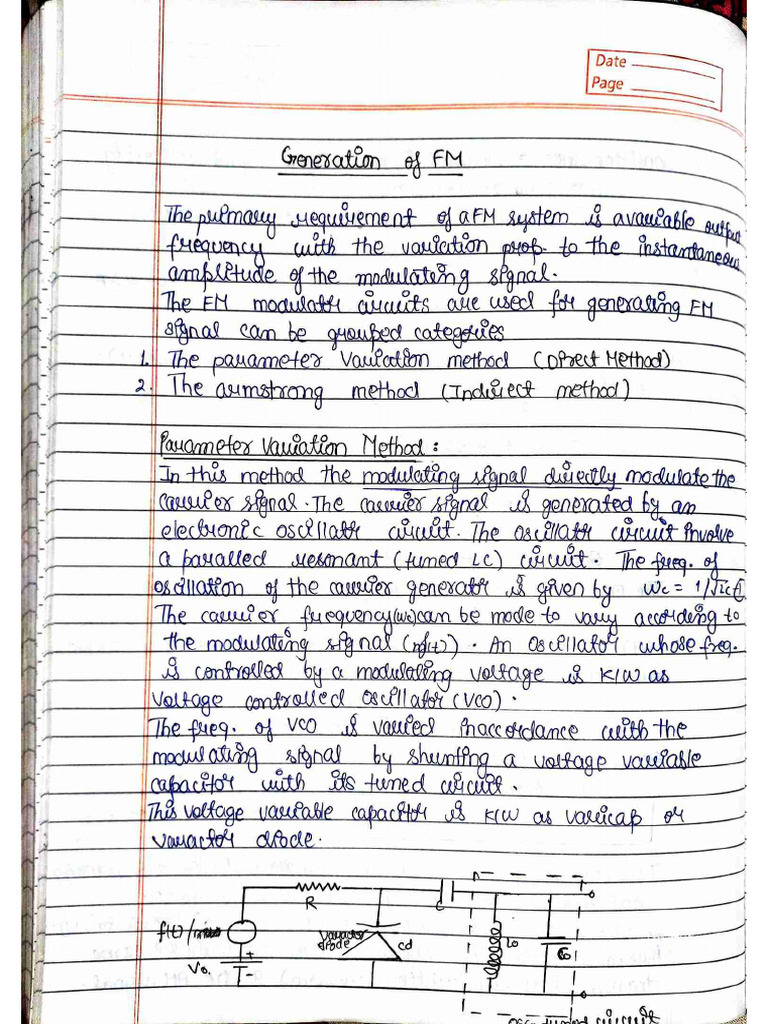 Date
Page
Generation of FM
The primary requirement of a FM system is a variable output
frequency with the variation prop. to the instantaneous
amplitude of the modulating signal.
The FM modulator circuits are used for generating FM
signal can be grouped categories
1. The parameter variation method (Direct Method)
2. The armstrong method (Indirect method)
Parameter Variation Method :
In this method the modulating signal directly modulate the
carrier signal. The carrier signal is generated by an
electronic oscillator circuit. The oscillator circuit involve
a paralled resonant (tuned LC) circuit. The freq. of
oscillation of the carrier generator is given by wc = 1/√
The carrier frequency(wc)can be mode to vary accordeng to
the modulating signal (m(t)). An Oscillator whose freq.
is controlled by a modulating voltage is K/W as
voltage controlled oscillator (VCO).
The freq. of VCO is varied inaccordance with the
modulating signal by shunting a voltage variable
capacitor with its tuned circuit.
This voltage variable capacitor is K/W as varicap or
varactor diode.
R
C
f(t)/
Varactor
diode
Cd
Lo
Co
Vo
+
-
tuned circuit